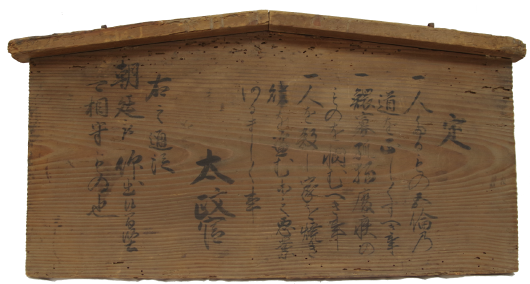 定
一人たるもの五倫乃
道を正しくすへき事
一鰥寡孤独癈疾の
ものを憫むへき事
一人を殺し家を焼き
財を盗む等之悪業
あるましく事
太政官
右之通従
朝廷被 仰出候間堅
可相守もの也